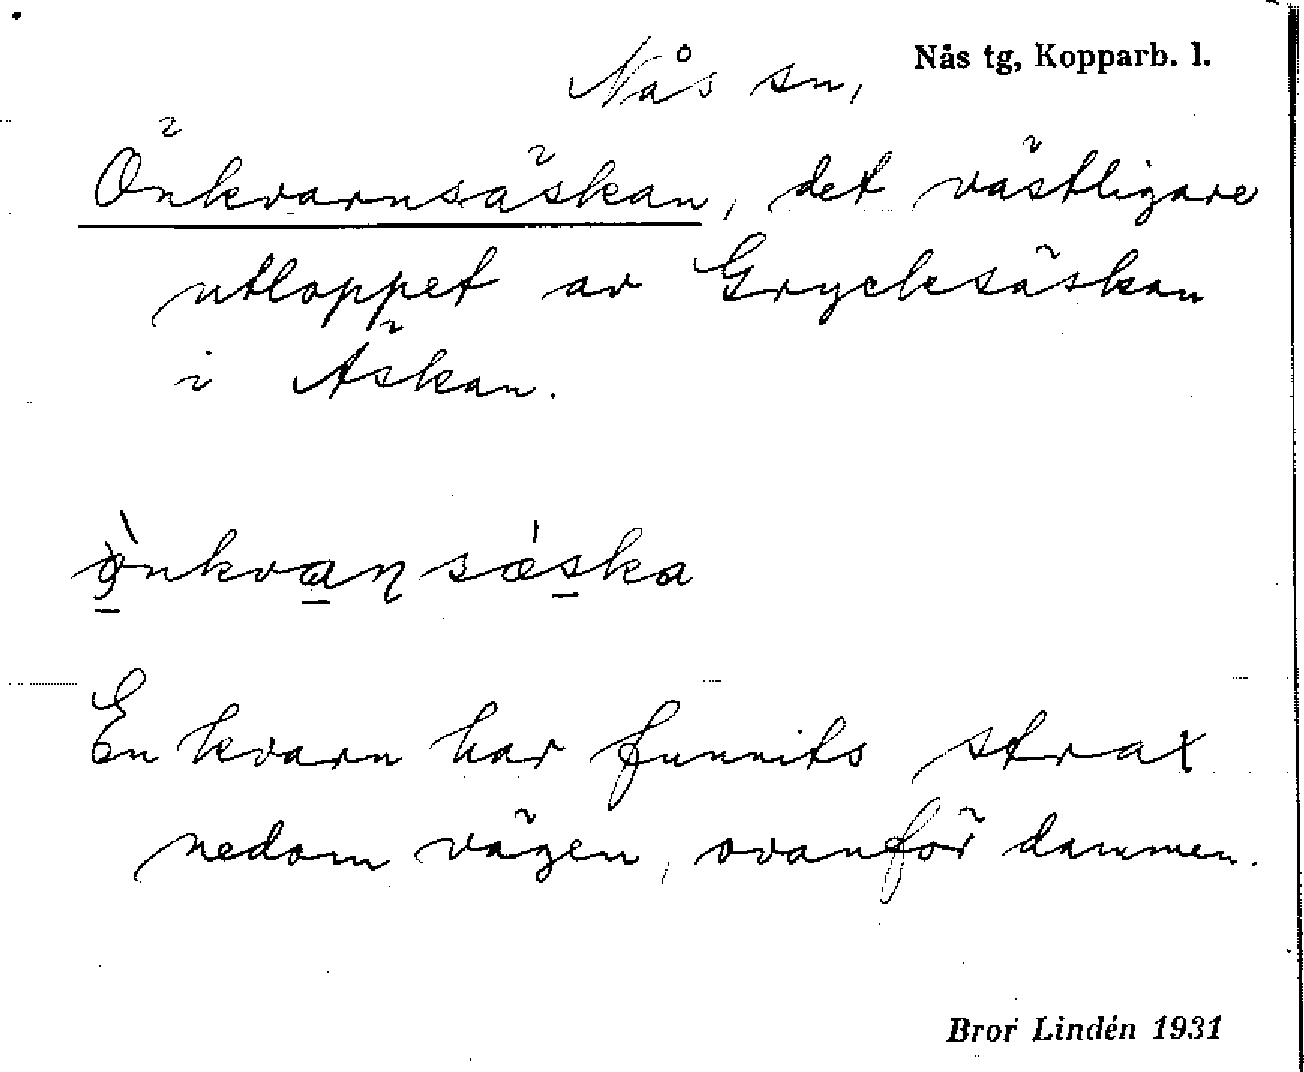 Nås tg, Kopparb. l.
Nås sn,
Önkvarnsäskan, det västligare
utloppet av Grycksäskan
i Äskan.
En kvarn har funnits strax
nedom vägen, ovanför dammen.
Bror Lindén 1931